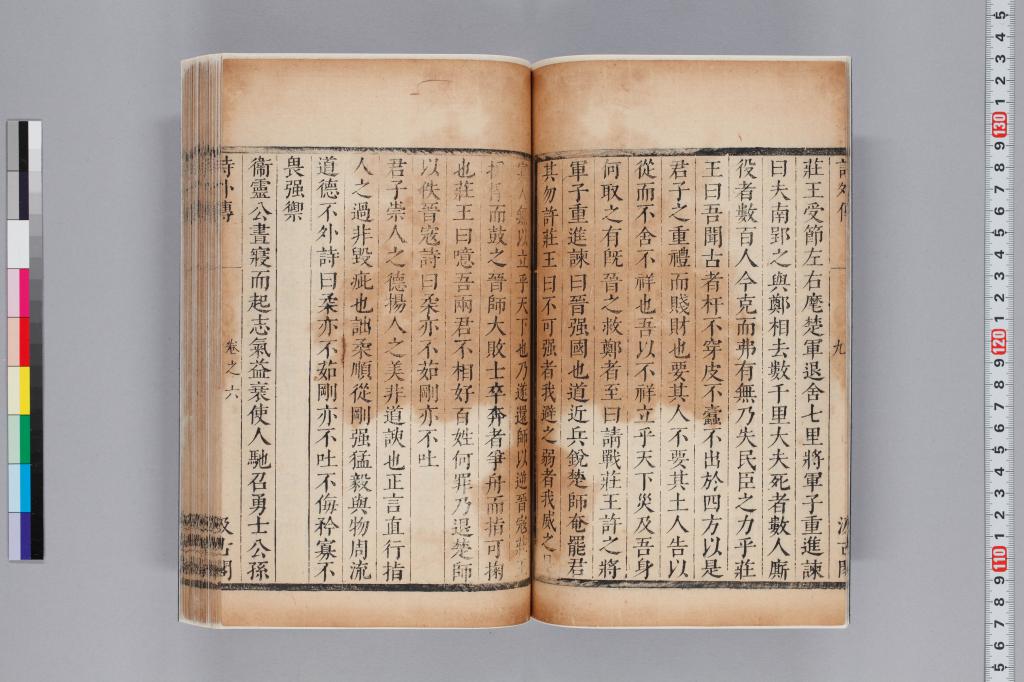 莊王受節左右麾楚軍退舍七里將軍子重進諫
曰夫南郢之與鄭相去數千里大夫死者數人廝
役者數百人今克而弗有無乃失民臣之力乎莊
王曰吾聞古者杅不穿皮不蠹不出於四方以是
君子之重禮而賤財也要其人不要其土人告以
從而不舍不祥也吾以不祥立乎天下災及吾身
何取之有既晉之救鄭者至曰請戰莊王許之將
軍子重進諫曰晉强國也道近兵銳楚師奄罷君
其勿許莊王曰不可强者我避之弱者我威之
以立乎天下也乃遂還師以逆晉寇莊
而鼓之晉師大敗士卒奔者爭舟而指可掬
也莊王曰噫吾兩君不相好百姓何罪乃退楚師
以佚晉寇詩曰柔亦不茹剛亦不吐
君子崇人之德揚人之美非道諛也正言直行指
人之過非毀疵也詘柔順從剛强猛毅與物周流
道德不外詩曰柔亦不茹剛亦不吐不侮矜寡不
畏强禦
衞靈公晝寢而起志氣益衰使人馳召勇士公孫
詩外傳
卷之六
汲古閣
九